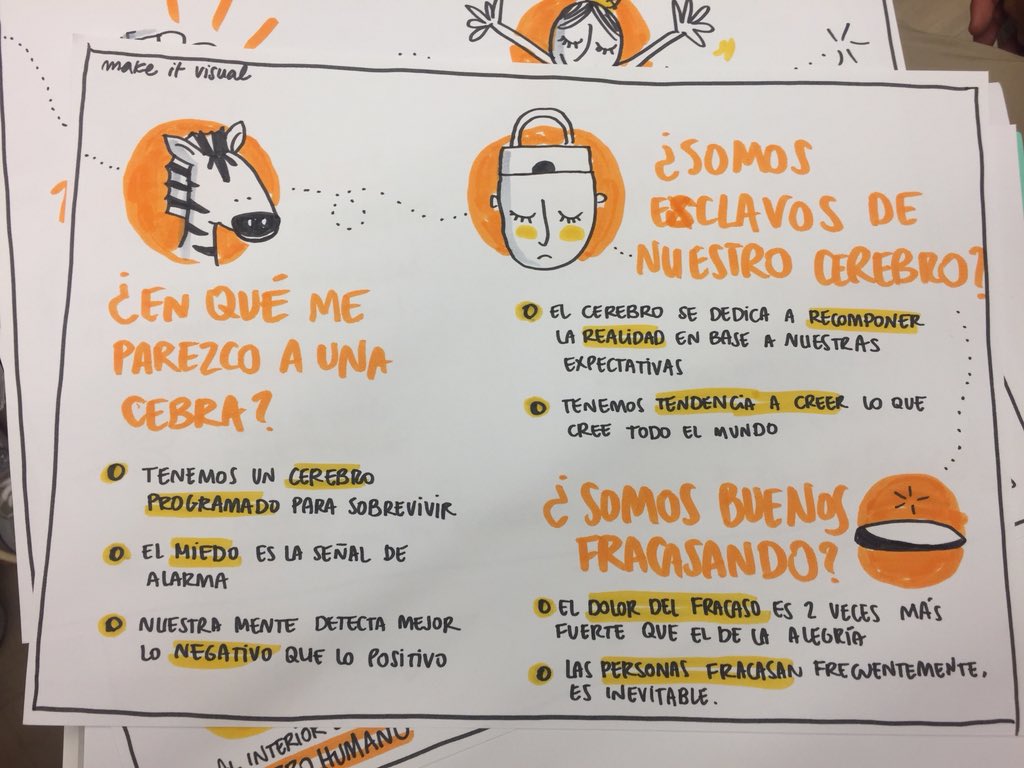 make it visual
¿EN QUÉ ME
PAREZCO A UNA
CEBRA?
TENEMOS UN CEREBRO
PROGRAMADO PARA SOBREVIVIR
EL MIEDO ES LA SEÑAL DE
ALARMA
NUESTRA MENTE DETECTA MEJOR
LO NEGATIVO QUE LO POSITIVO
¿SOMOS
ESCLAVOS DE
NUESTRO CEREBRO?
EL CEREBRO SE DEDICA A RECOMPONER
LA REALIDAD EN BASE A NUESTRAS
EXPECTATIVAS
TENEMOS TENDENCIA A CREER LO QUE
CREE TODO EL MUNDO
¿SOMOS BUENOS
FRACASANDO?
EL DOLOR DEL FRACASO ES 2 VECES MÁS
FUERTE QUE EL DE LA ALEGRÍA
LAS PERSONAS FRACASAN FRECUENTEMENTE,
ES INEVITABLE.
AL INTERIOR
HUMANO